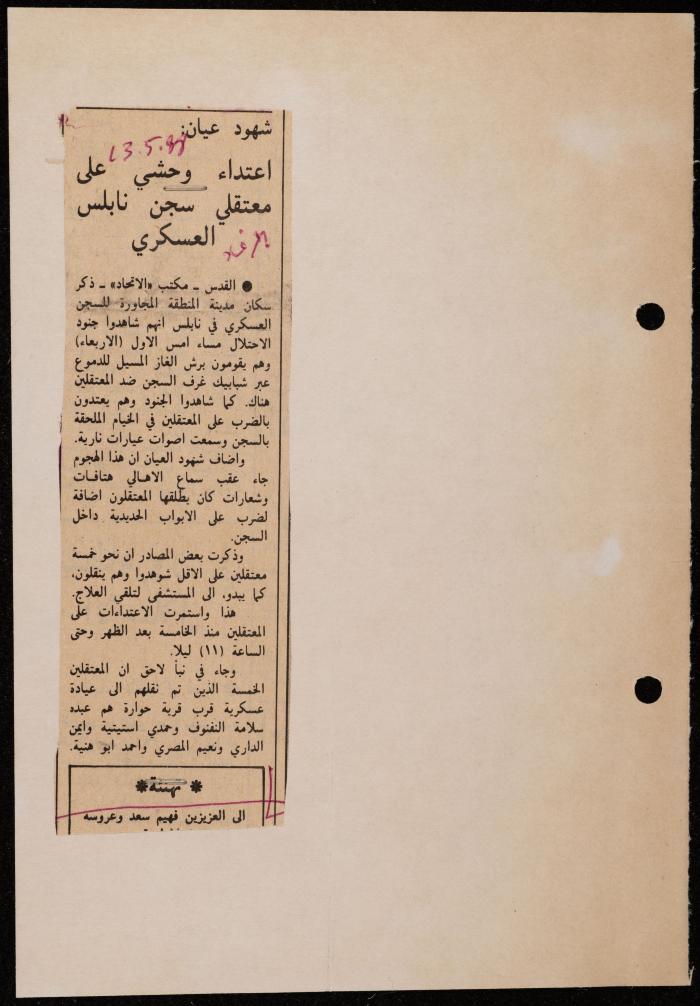 شهود عيان:
13.5.88
اعتداء وحشي على
معتقلي سجن نابلس
العسكري
● القدس ــ مكتب «الاتحاد» ــ ذكر
سكان مدينة المنطقة المجاورة للسجن
العسكري في نابلس انهم شاهدوا جنود
الاحتلال مساء امس الاول (الاربعاء)
وهم يقومون برش الغاز المسيل للدموع
عبر شبابيك غرف السجن ضد المعتقلين
هناك. كما شاهدوا الجنود وهم يعتدون
بالضرب على المعتقلين في الخيام الملحقة
بالسجن وسمعت اصوات عيارات نارية.
واضاف شهود العيان ان هذا الهجوم
جاء عقب سماع الاهالي هتافات
وشعارات كان يطلقها المعتقلون اضافة
لضرب على الابواب الحديدية داخل
السجن.
وذكرت بعض المصادر ان نحو خمسة
معتقلين على الاقل شوهدوا وهم ينقلون،
كما يبدو، الى المستشفى لتلقي العلاج.
هذا واستمرت الاعتداءات على
المعتقلين منذ الخامسة بعد الظهر وحتى
الساعة (١١) ليلا.
وجاء في نبأ لاحق ان المعتقلين
الخمسة الذين تم نقلهم الى عيادة
عسكرية قرب قرية حوارة هم عبده
سلامة النفنوف وحمدي استيتية وايمن
الداري ونعيم المصري واحمد ابو هنية.
* تهنئة *
الى العزيزين فهيم سعد وعروسه